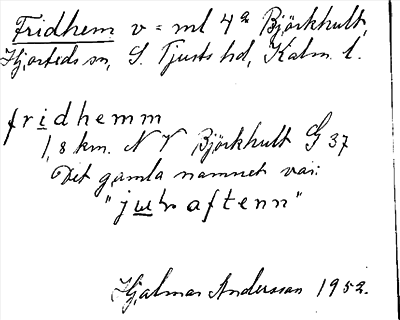 Fridhem v = ml 4ª Björkhult,
Hjorteds sn, S. Tjusts hd, Kalm. l.
fridhemm
1,8 km. N V Björkhult G 37
Det gamla namnet var:
"julraftenn"
Hjalmar Andersson 1952.